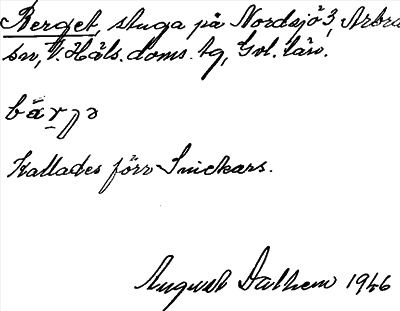 Berget, stuga på Nordsjö 3, Arbrå
sn, V. Häls. doms. tg, Gvl. län.
bärjə
Kallades förr Snickars.
August Dalhem 1946